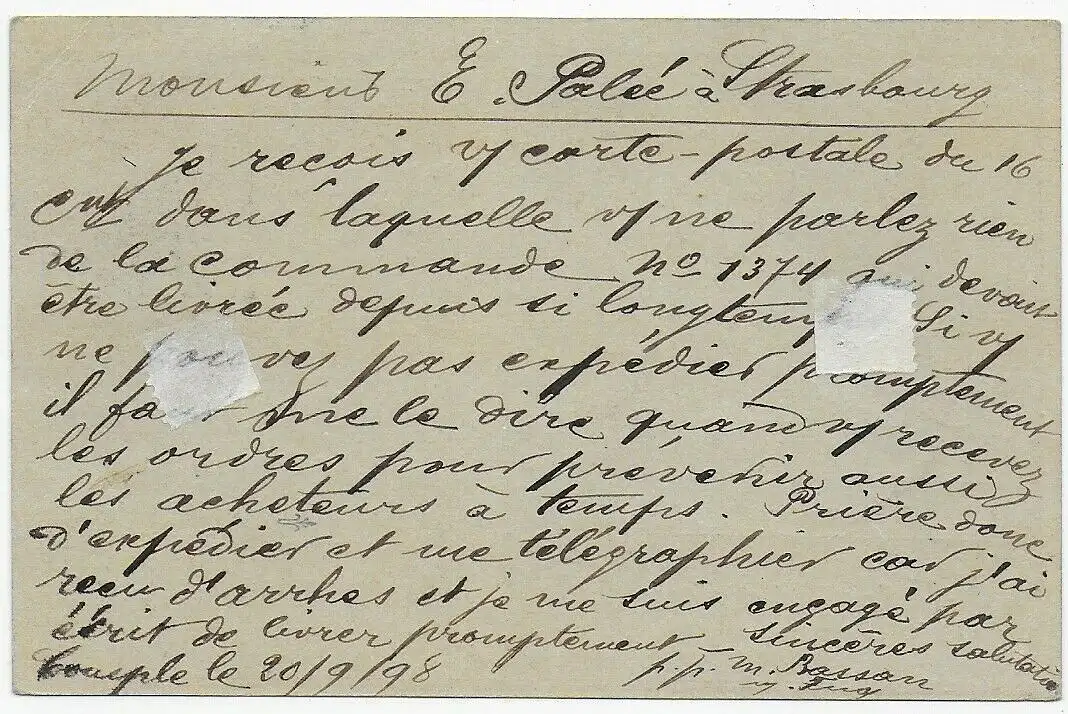 Monsieur E. Palée à Strasbourg
Je recois vs carte-postale du 16
crt dans laquelle vs ne parlez rien
de la commande No 1374 qui devait
être livrée depuis si longtemps Si vs
ne pouvez pas expédier promptement
il faut me le dire quand vs recevez
les ordres pour prévenir aussi
les acheteurs à temps. Prière donc
d'expédier et me télégraphier car j'ai
recu d'arrhes et je me suis engagé par
écrit de livrer promptement sincères salutations
le 20/9/98 p.p. M. Bassan